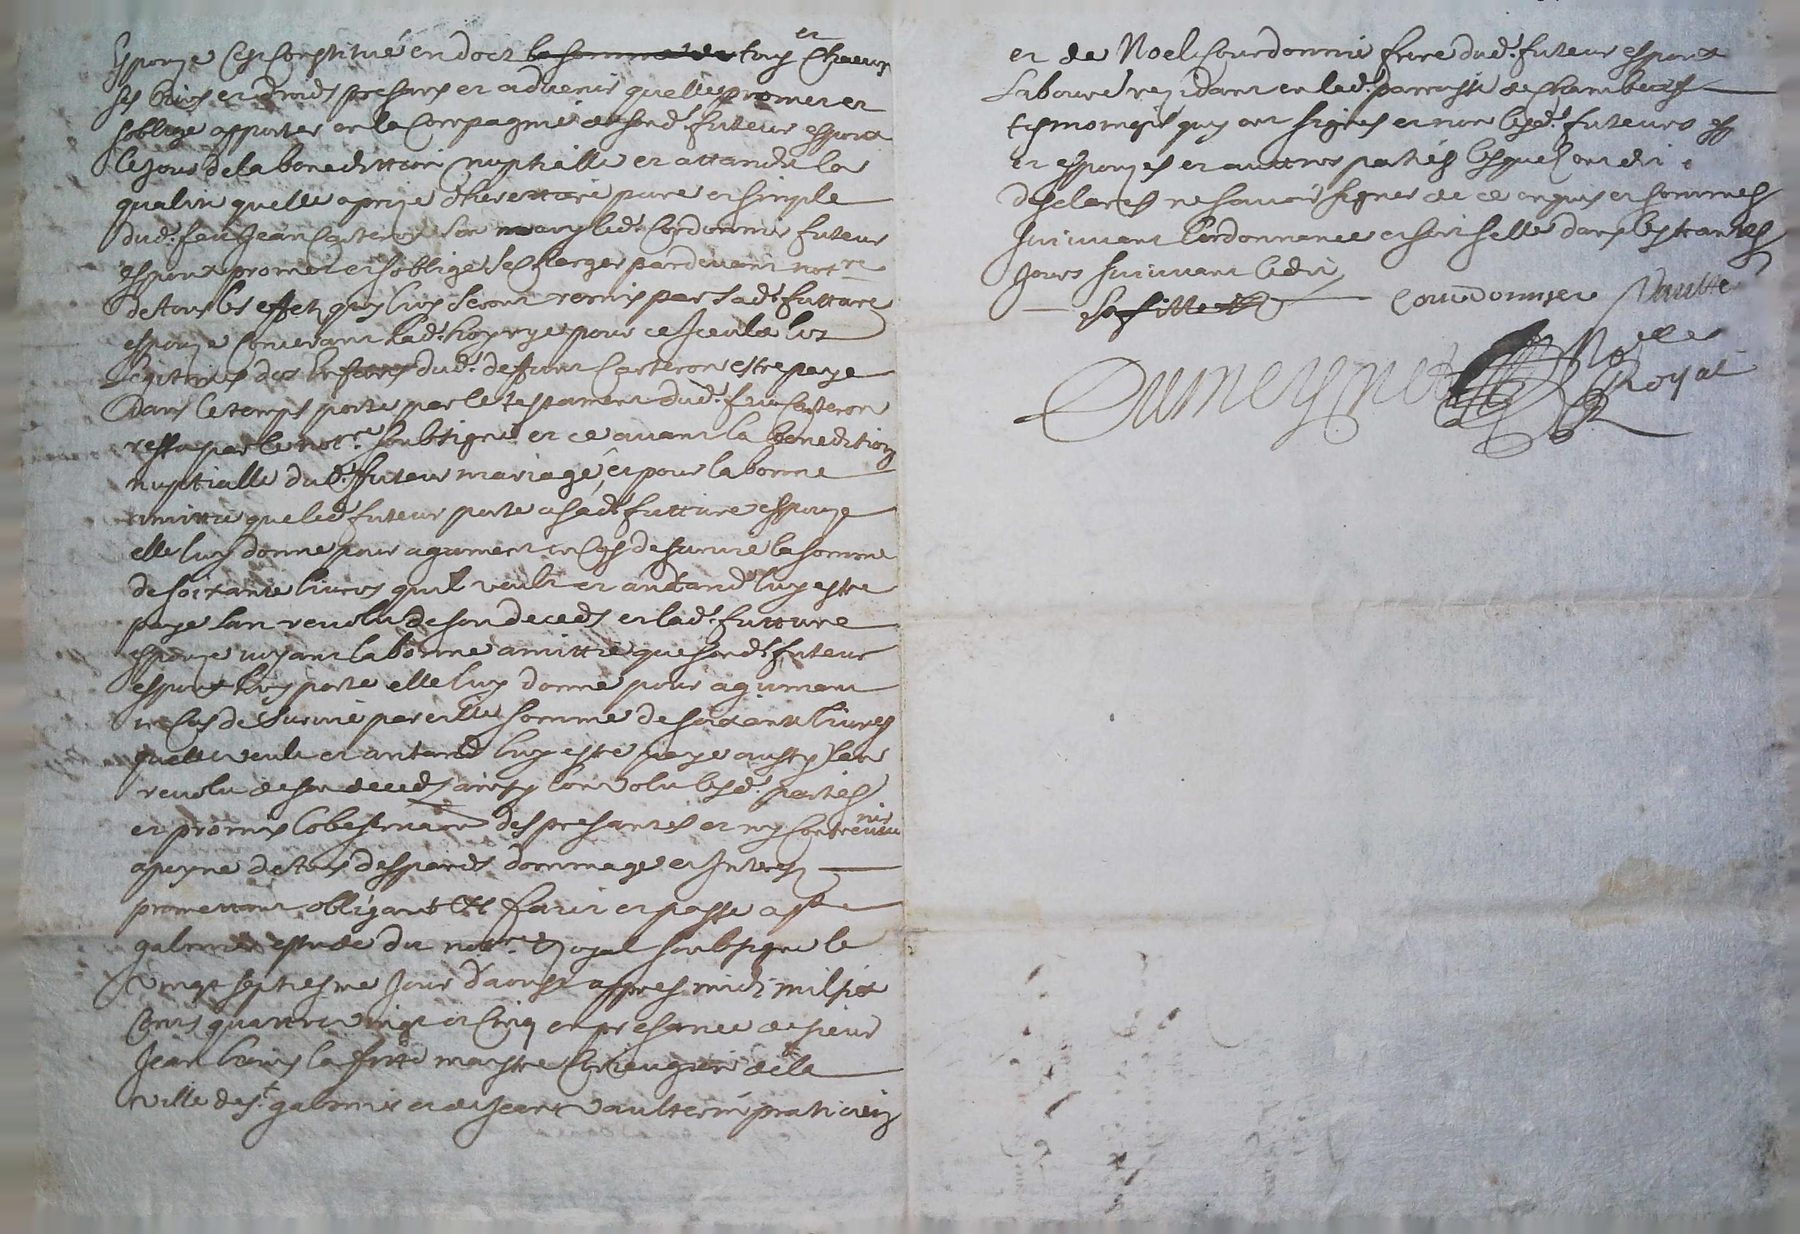 Espouze cest constitué en doct la somme de tous et chacuns
ses biens et droids presans et advenir quelle promet et
soblige apporter en la compagnie de sond. futeur espoux
le jour de la benedittion nuptialle et attandu la
qualité quelle a prize dherettiere pure et simple
dud. feu Jean Carteron son mary led. Cordonnier futeur
espoux promet et soblige se charger pardevant notre
de tous les effetz quy luy seront remis par sad. future
espouze concernant lad. hoyrye pour ce
legitimes des enfans dud. deffunt Carteron estre paye
dans le temps porté par le testament dud. feu Carteron
ressu par le notre. soubsigné et ce avant la benedition
nuptialle dud. futeur mariage, et pour la bonne
amittie que led. futeur porte a sad. future espouze
elle luy donne pour agument en cas de survie la somme
de soixante livres quil veult et antand luy estre
paye lan revolu de son deceds et lad. future
espouze voyant la bonne amittie que sond. futeur
espoux luy porte elle luy donne pour agument
en cas de survie pareille somme de soixante livres
quelle veult et antand luy estre paye aussy lan
revolu de son deceds ainsy lon volu lesd. parties
et promis lobeservation des presantes et ny contrevenir
a peyne de tous despands dommage et Interest
promettant obligant &c faict et passe a St
galmier estude du notre. Royal soubsigne le
vingt septiesme jour daoust appres midi mil six
cens quattre vingt et cinq en presance de sieur
Jean Louis Lafitte maystre Chirurgien de la
ville de St. galmier et de Jean Vaulterin praticien
et de Noel Courdonnie frere dud. futeur espoux
Laboure rezidant en led. parroisse de Chambeost
tesmoings quy ont signes et non lesd. futeurs esp
et espouzes et auttres parties lesquelz ont dit
desclares ne savoir signer de ce enquis et sommes
suivant lordonnance et sera selle dans les trantes
jours suivant ledit
Lafitte Courdonnier Vaulte
Dumeynet Nore
Royal